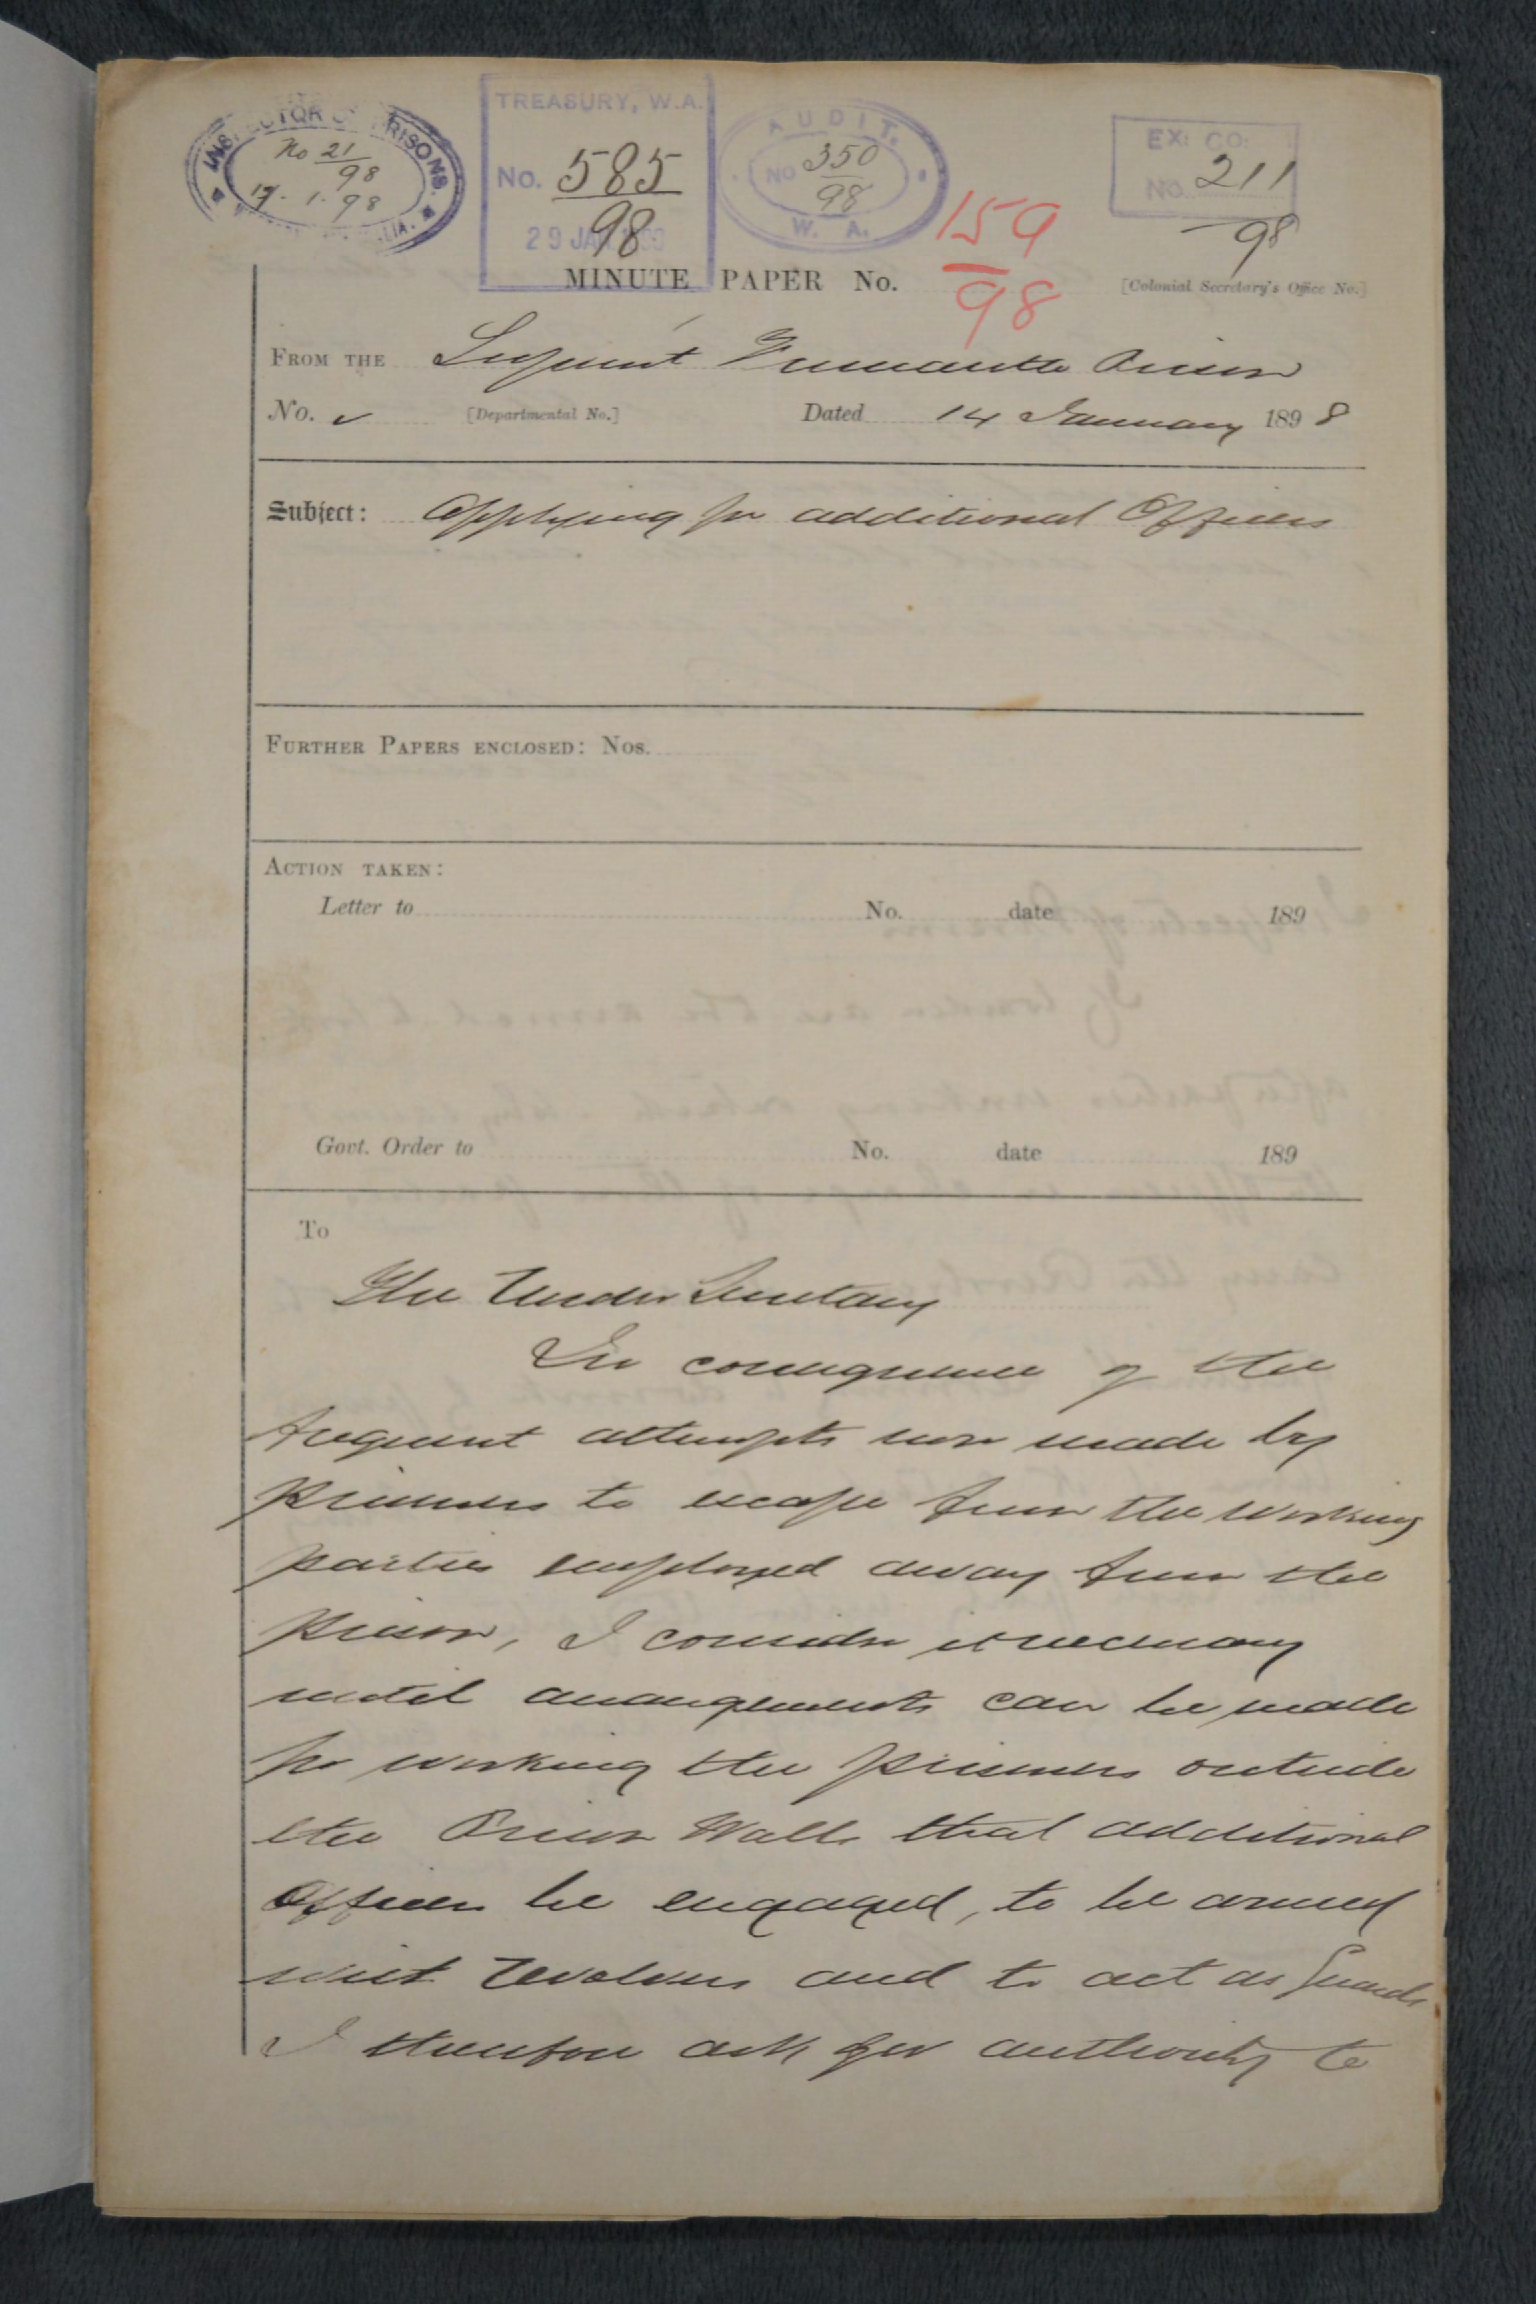 INSPECTOR OF PRISONS.
No 21/98
17. 1. 98
TREASURY, W.A.
No. 585/98
29 JAN
AUDIT,
No 350/98
W. A.
EX: CO:
No. 211/98
159/98
MINUTE PAPER No.
[Colonial Secretary's Office No.]
FROM THE Supeint Fremantle Prison
No. [Departmental No.] Dated 14 January 1898
Subject: Applying for additional Officers
FURTHER PAPERS ENCLOSED: Nos.
ACTION TAKEN:
Letter to No. date 189
Govt. Order to No. date 189
To
The Under Secretary
In consequence of the
frequent attempts now made by
Prisoners to escape from the working
parties employed away from the
Prison, I consider it necessary
until arrangements can be made
for working the prisoners outside
the Prison Walls that additional
Officers be engaged, to be armed
with Revolvers and to act as Guards
I therefore ask for authority to